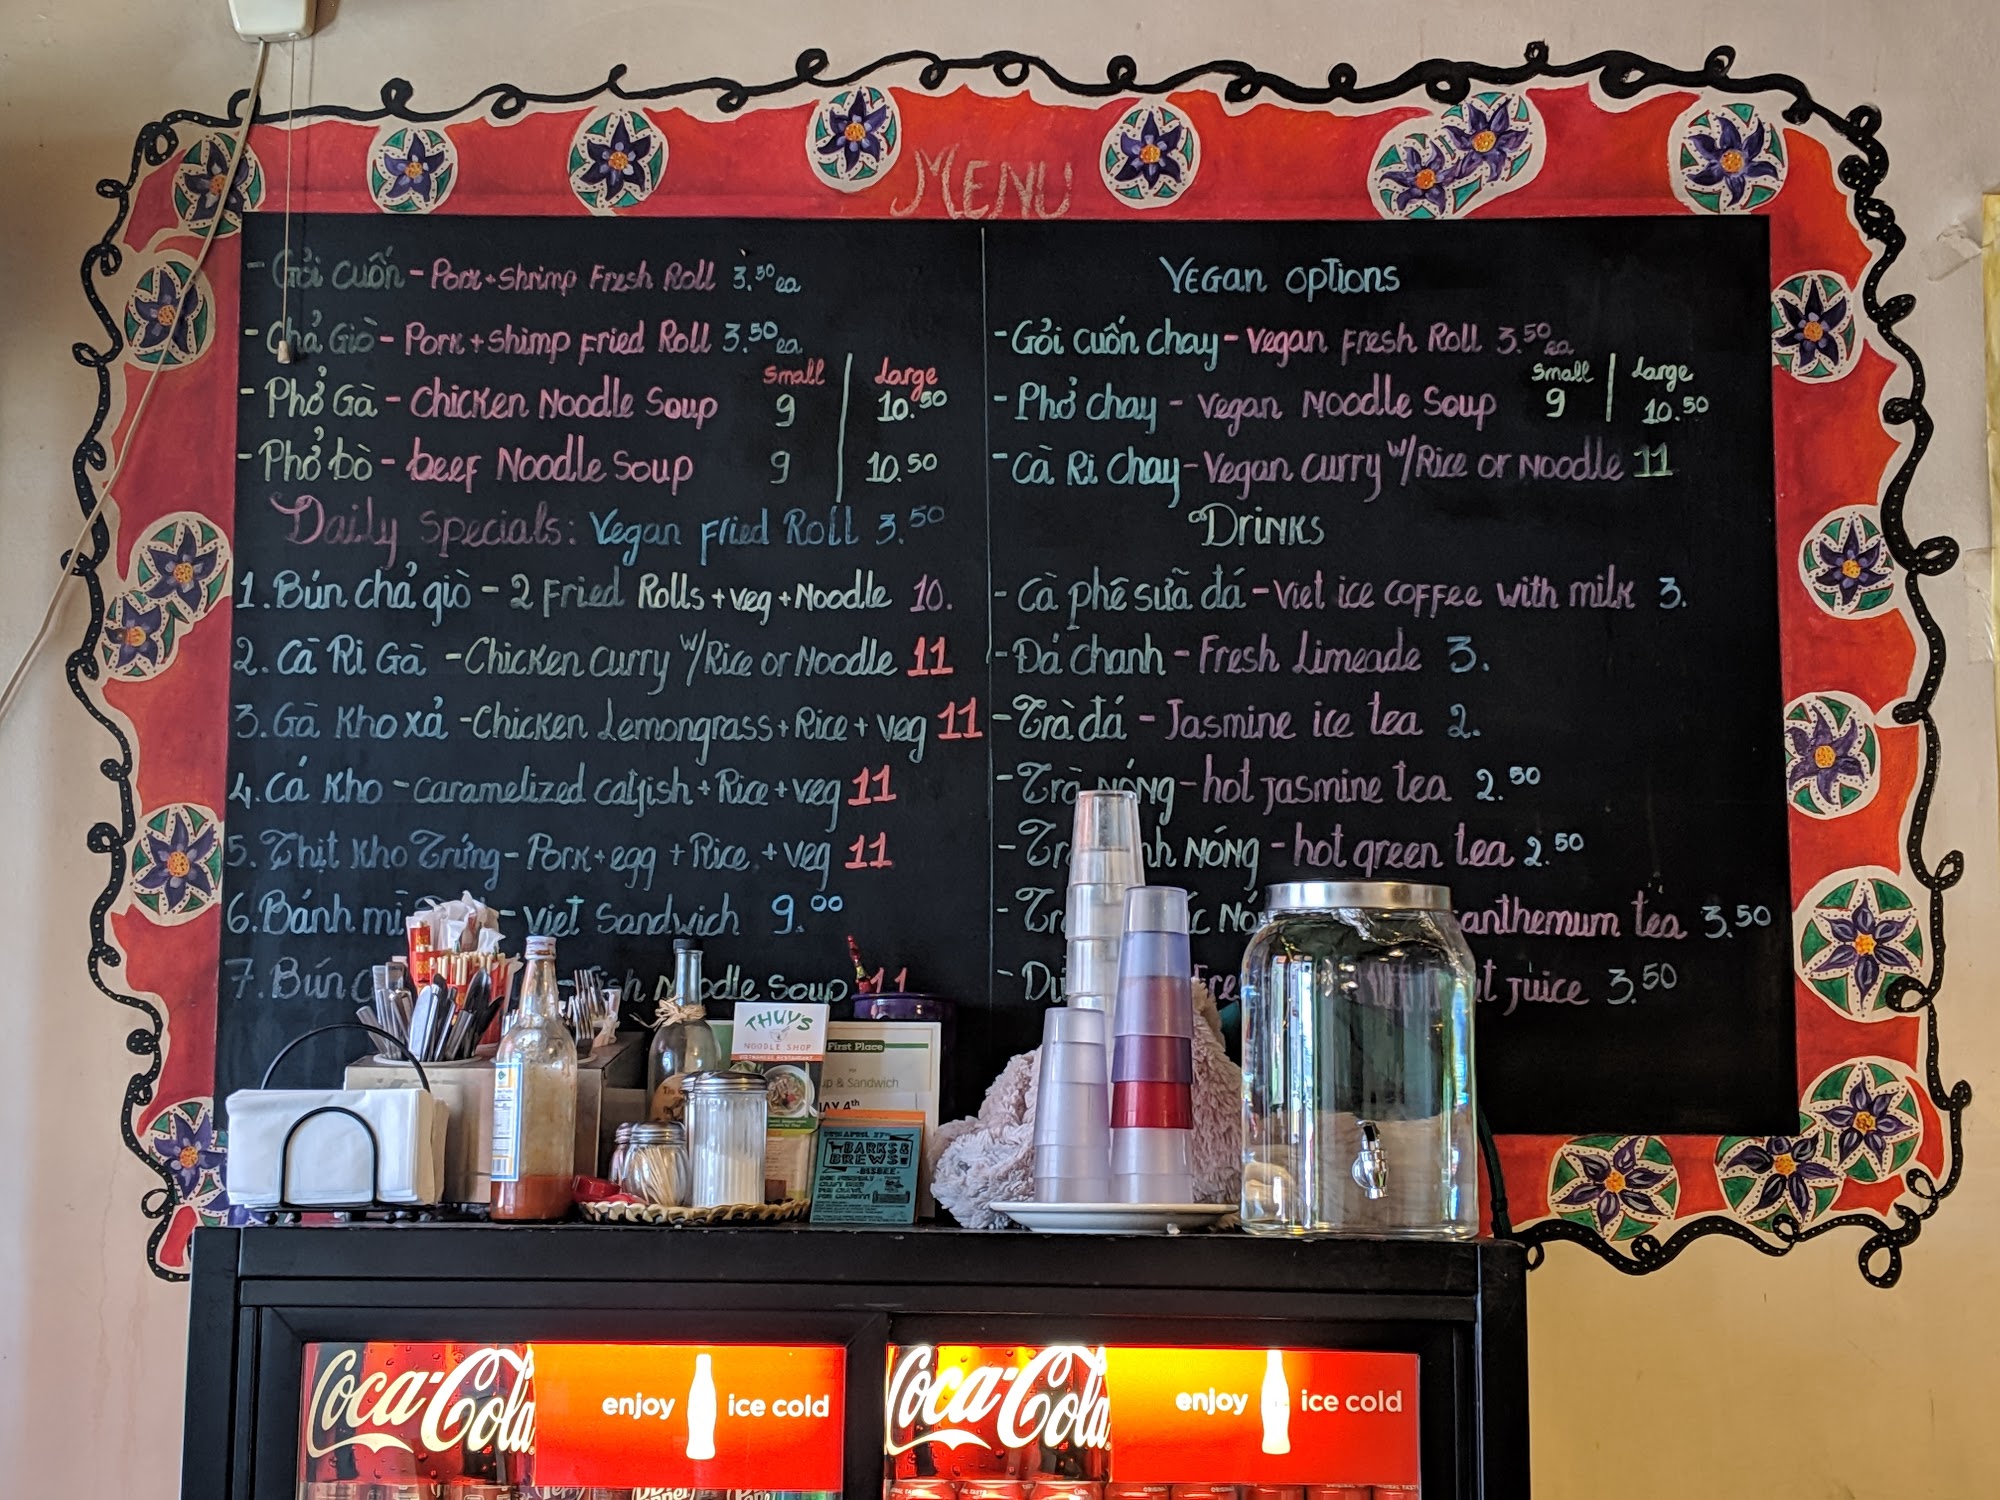 MENU
- Gỏi cuốn - Pork + Shrimp Fresh Roll 3.50 ea
- Chả Giò - Pork + Shimp Fried Roll 3.50 ea
Small | Large
- Phở Gà - Chicken Noodle Soup 9 | 10.50
- Phở bò - beef Noodle Soup 9 | 10.50
Daily Specials: Vegan Fried Roll 3.50
1. Bún chả giò - 2 Fried Rolls + veg + Noodle 10.
2. Cà Ri Gà - Chicken Curry w/Rice or Noodle 11
3. Gà Kho xả - Chicken Lemongrass + Rice + veg 11
4. Cá Kho - caramelized catfish + Rice + veg 11
5. Thịt Kho Trứng - Pork + egg + Rice + veg 11
6. Bánh mì - Viet Sandwich 9.00
7. Bún Noodle Soup 11
Vegan Options
- Gỏi cuốn chay - Vegan Fresh Roll 3.50 ea
Small | Large
- Phở chay - Vegan Noodle Soup 9 | 10.50
- Cà Ri Chay - Vegan Curry w/Rice or Noodle 11
Drinks
- Cà phê sữa đá - Viet ice coffee with milk 3.
- Đá chanh - Fresh Limeade 3.
- Trà đá - Jasmine ice tea 2.
- Trà NÓNG - hot Jasmine tea 2.50
- NÓNG - hot green tea 2.50
- tea 3.50
- Juice 3.50
THUY'S
NOODLE SHOP
VIETNAMESE RESTAURANT
First Place
for
& Sandwich
MAY 4th
BARKS &
BREWS
BISBEE
Coca-Cola
enjoy ice cold
Coca-Cola
enjoy ice cold